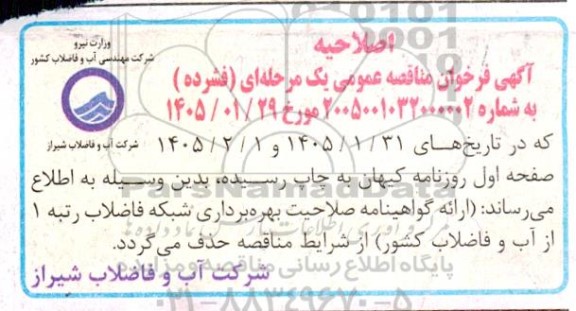 وزارت نیرو
شرکت مهندسی آب و فاضلاب کشور
شرکت آب و فاضلاب شیراز
اصلاحیه
آگهی فرخوان مناقصه عمومی یک مرحله‌ای (فشرده)
به شماره ۲۰۰۵۰۰۱۰۳۲۰۰۰۰۰۲ مورخ ۱۴۰۵/۰۱/۲۹
که در تاریخ‌های ۱۴۰۵/۱/۳۱ و ۱۴۰۵/۲/۱
صفحه اول روزنامه کیهان به چاپ رسیده، بدین وسیله به اطلاع
می‌رساند: (ارائه گواهینامه صلاحیت بهره‌برداری شبکه فاضلاب رتبه ۱
از آب و فاضلاب کشور) از شرایط مناقصه حذف می‌گردد.
شرکت آب و فاضلاب شیراز
ParsNamadData
پایگاه اطلاع رسانی مناقصه و مزایده
۰۲۱-۸۸۳۴۹۶۷۰-۵